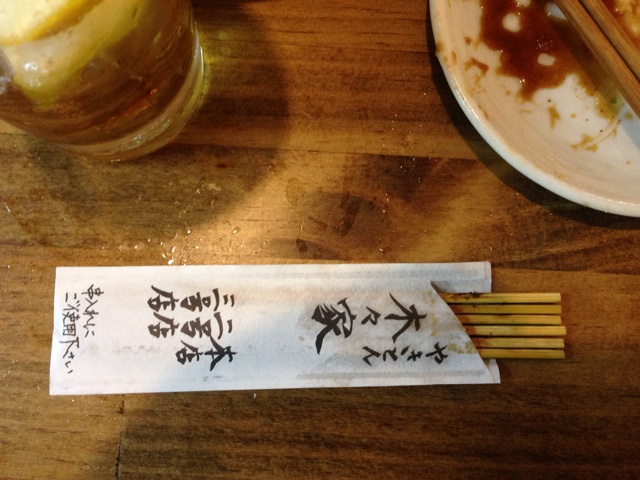 やきとん
木々家
本店
二号店
三号店
串入れに
ご使用下さい